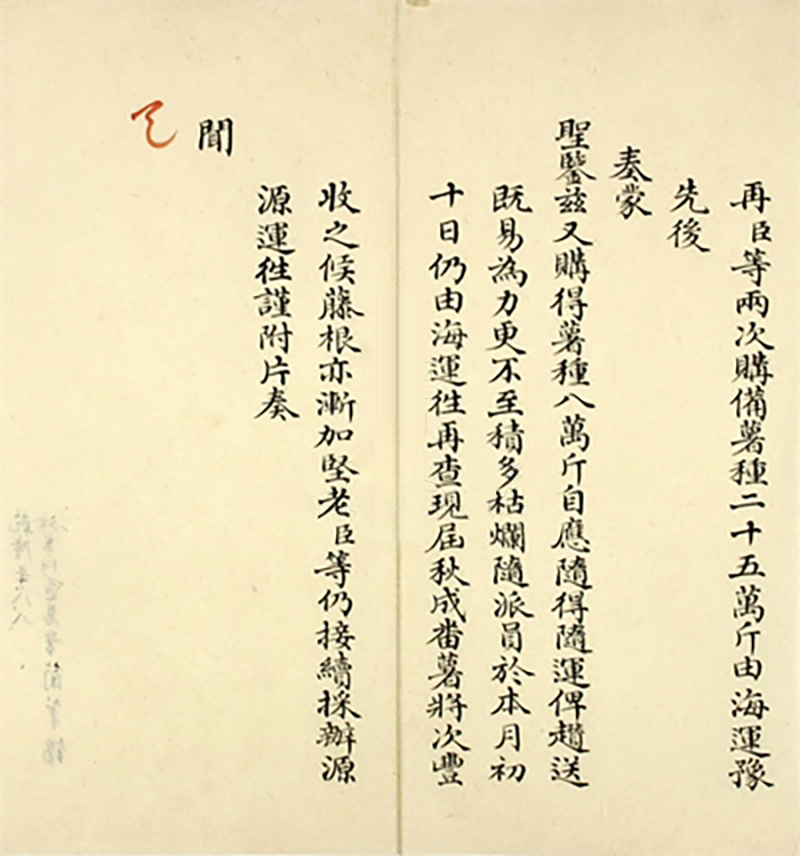 再臣等兩次購備薯種二十五萬斤由海運豫
先後
奏蒙
聖鑒茲又購得薯種八萬斤自應隨得隨運俾趲送
既易為力更不至積多枯爛隨派員於本月初
十日仍由海運往再查現屆秋成番薯將次豐
收之候藤根亦漸加堅老臣等仍接續採辦源
源運往謹附片奏
聞